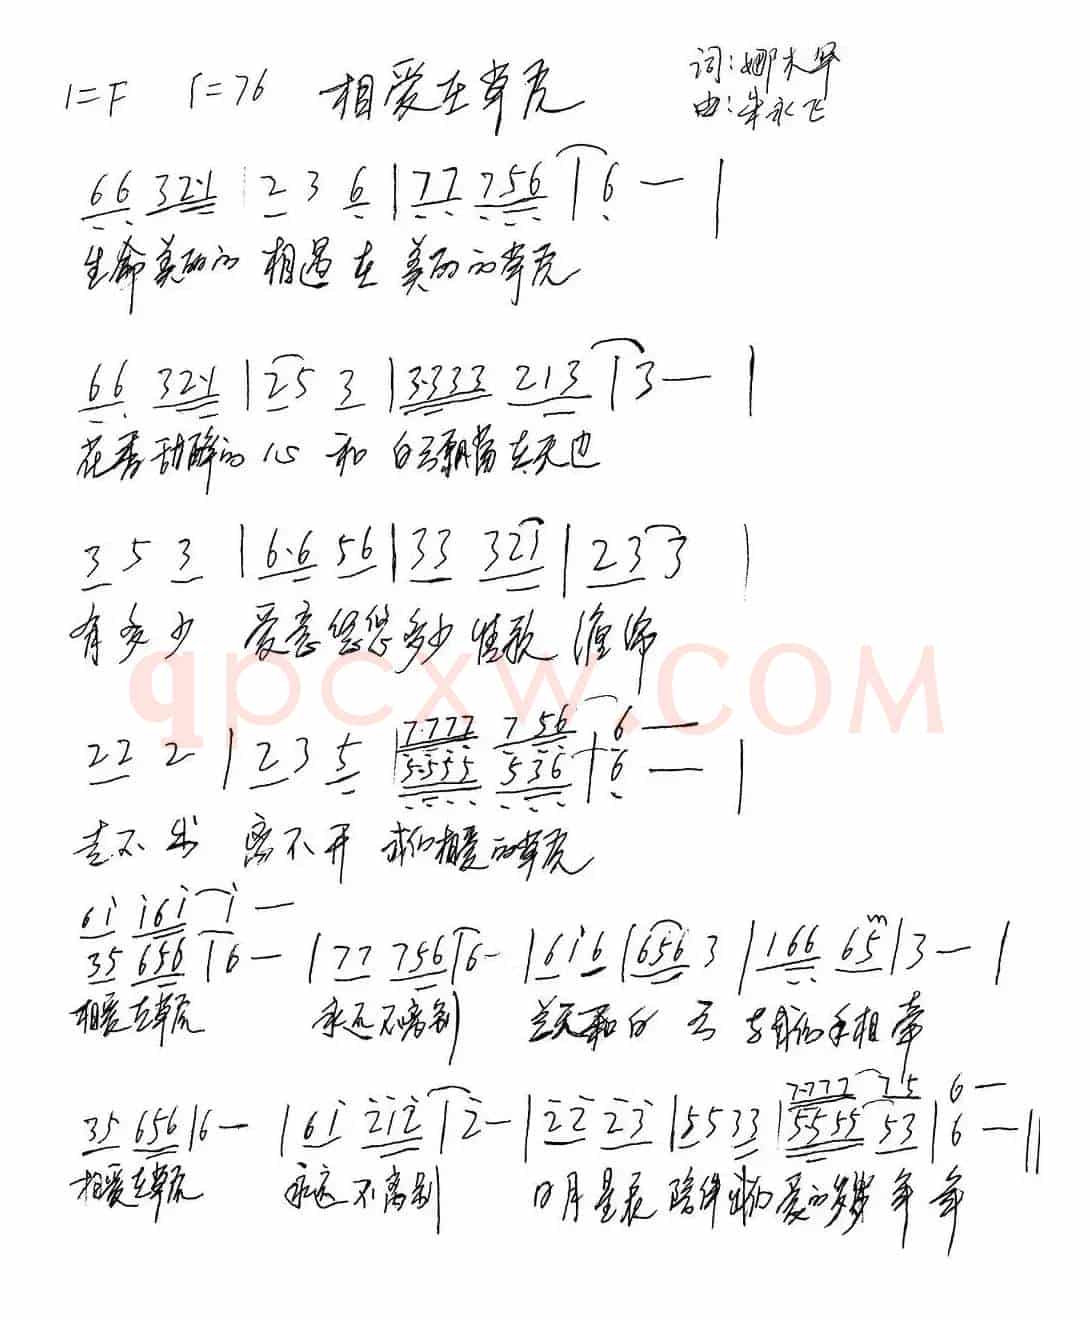 1=F ♩=76 相爱在草原
词:娜木罕
曲:朱永飞
66 32·1 | 2 3 6 | 77 756 | 6 — |
生命美丽的 相遇在 美丽的草原
66 32·1 | 25 3 | 3·333 213 | 3 — |
花香甜醉的 心 和 白云飘荡在天边
3 5 3 | 6·6 56 | 33 321 | 23 3 |
有多少 爱意悠悠 多少 情歌 缠绵
7·777 756 6 —
22 2 | 23 5 | 5·555 536 | 6 — |
走不出 离不开 我们相爱的草原
61 161 1 —
35 656 | 6 — | 77 756 | 6 - | 616 | 656 3 | 166 65 | 3 — |
相爱在草原 永远不离别 兰天和白 云 与我们手相牵
7·777 75 6 —
35 656 | 6 — | 61 212 | 2 — | 22 23 | 55 33 | 5·555 53 | 6 — ||
相爱在草原 永远不离别 日月星辰 陪伴我们 爱的岁岁年年
qpcxw.COM